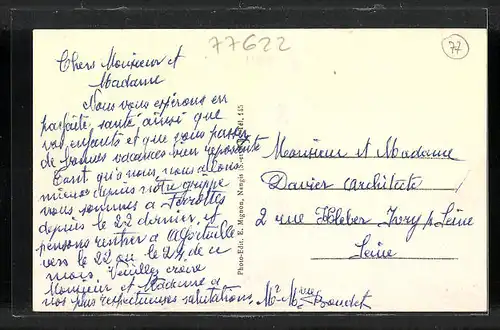 77622
77
Chers Monsieur et
Madame
Nous vous espérons en
parfaite santé ainsi que
vos enfants et que vous passez
de bonnes vacances bien reposante
Tant qu'à nous, nous allons
mieux depuis notre grippe
nous sommes à Ferrottes
depuis le 22 dernier, et
pensons rentrer à Alfortville
vers le 22 ou le 24 de ce
mois, Veuillez croire
Monsieur et Madame à
nos plus respectueuses salutations, Mr Mme Boudet
Photo-Edit. E. Mignon, Nangis (S.-et-M.) Tél. 145
Monsieur et Madame
Davier architecte
2 rue Kleber Ivry s/ Seine
Seine